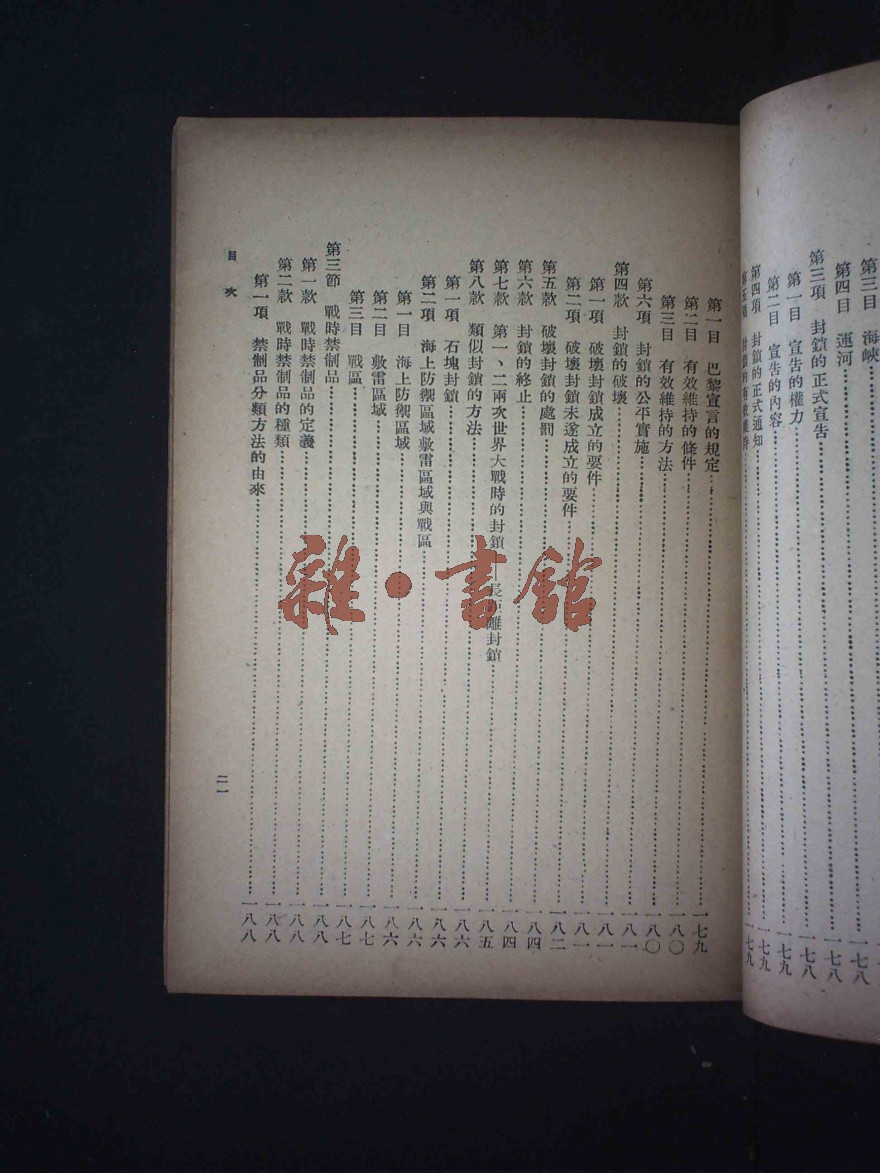 第三目　海峽………一七八
第四目　運河………一七八
第三項　封鎖的正式宣告………一七八
第一目　宣告的權力………一七八
第二目　宣告的內容………一七九
第四項　封鎖的正式通知………一七九
第五項　封鎖的有效維持………一七九
第一目　巴黎宣言的規定………一七九
第二目　有效維持的條件………一八〇
第三目　有效維持的方法………一八〇
第六項　封鎖的公平實施………一八一
第四款　封鎖的破壞………一八一
第一項　破壞封鎖成立的要件………一八一
第二項　破壞封鎖未遂成立的要件………一八二
第五款　破壞封鎖的處罰………一八四
第六款　封鎖的終止………一八四
第七款　第一、二兩次世界大戰時的封鎖——長距離封鎖………一八五
第八款　類似封鎖的方法………一八六
第一項　石塊封鎖………一八六
第二項　海上防禦區域敷雷區域與戰區………一八六
第一目　海上防禦區域………一八六
第二目　敷雷區域………一八七
第三目　戰區………一八七
第三節　戰時禁制品………一八八
第一款　戰時禁制品的定義………一八八
第二款　戰時禁制品的種類………一八八
第一項　禁制品分類方法的由來………一八八
目次
二一
雜·書館